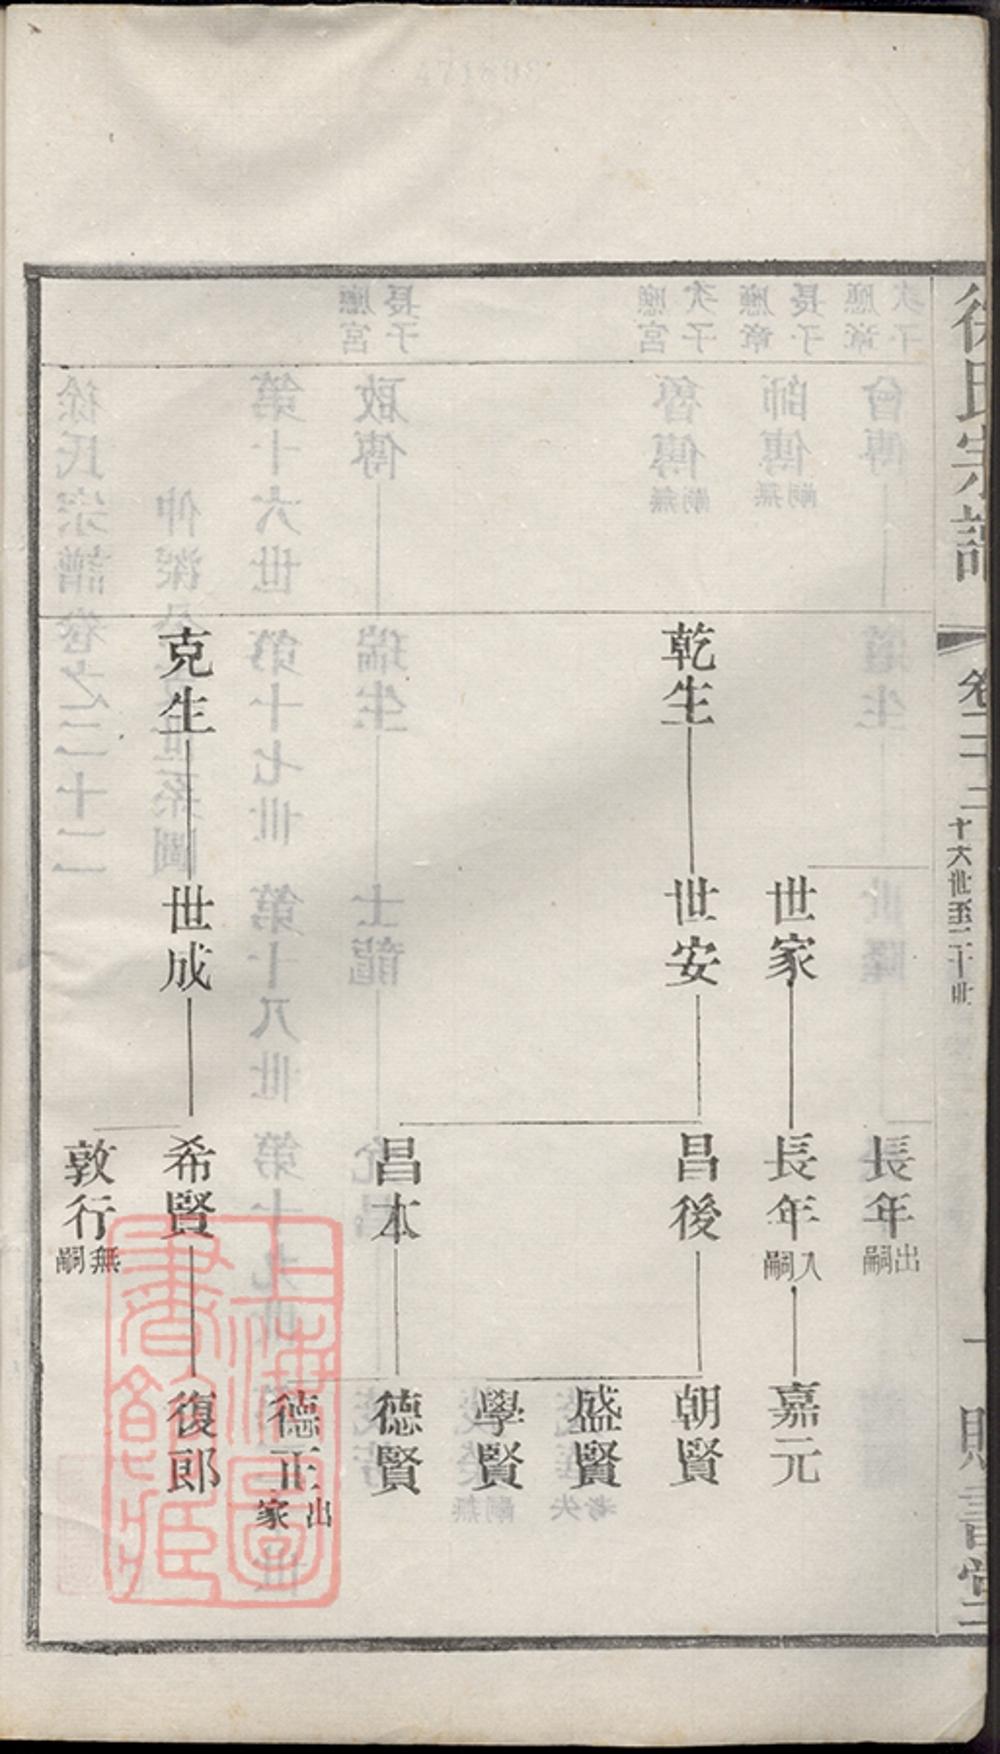 徐氏宗譜
卷二十二
十六世至二十世
一
賜書堂
長年
出嗣
世家
長年
入嗣
嘉元
乾生
世安
昌後
朝賢
盛賢
學賢
昌本
德賢
德正
出家
克生
世成
希賢
復郎
敦行
無嗣
上海圖書館藏